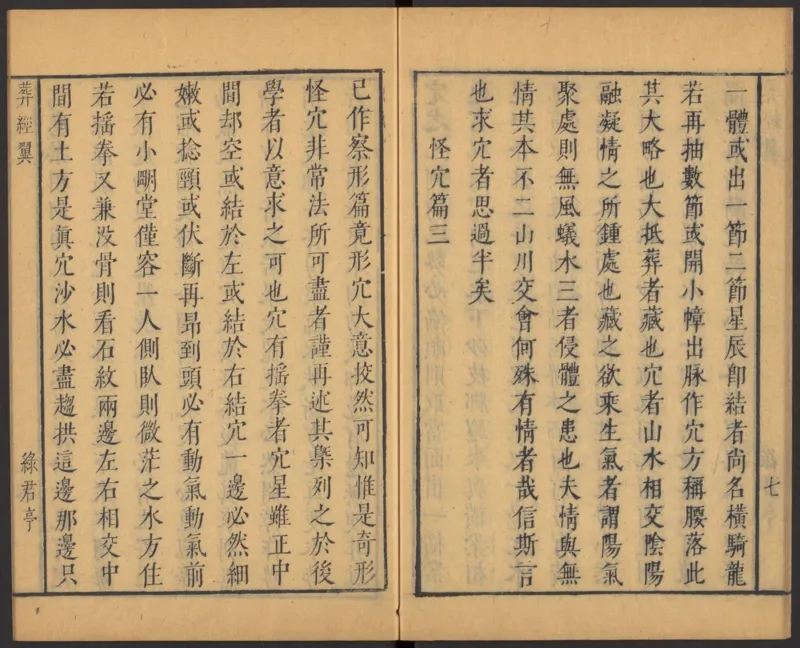 七
一體或出一節二節星辰卽結者尚名橫騎龍
若再抽數節或開小幛出脉作穴方稱腰落此
其大略也大抵葬者藏也穴者山水相交陰陽
融凝情之所鍾處也藏之欲乘生氣者謂陽氣
聚處則無風蟻水三者侵體之患也夫情與無
情其本不二山川交會何殊有情者哉信斯言
也求穴者思過半矣
怪穴篇三
已作察形篇竟形穴大意挍然可知惟是奇形
怪穴非常法所可盡者謹再述其槩列之於後
學者以意求之可也穴有揺拳者穴星雖正中
間却空或結於左或結於右結穴一邊必然細
嫩或捻頸或伏斷再昻到頭必有動氣動氣前
必有小明堂僅容一人側臥則微茫之水方住
若揺拳又兼没骨則看石紋兩邊左右相交中
間有土方是眞穴沙水必盡趨拱這邊那邊只
葬經翼
綠君亭